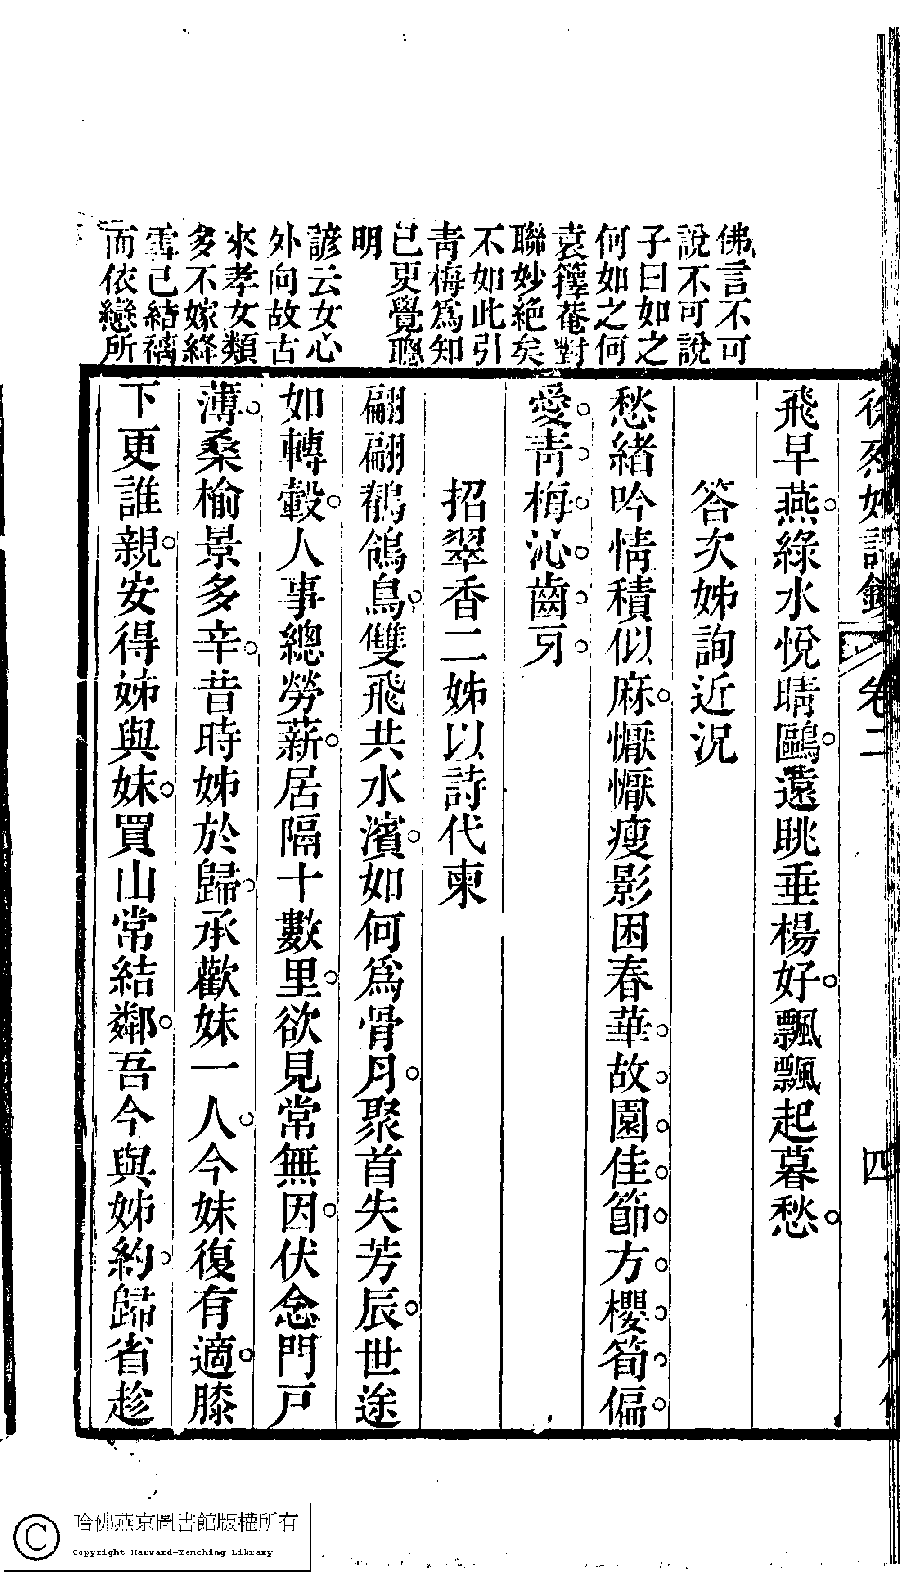 佛言不可
說不可說
子曰如之
何如之何
袁籜菴對
聯妙絕矣
不如此引
青梅爲知
已更覺聰
明
諺云女心
外向故古
來孝女類
多不嫁絳
雪已結褵
而依戀所
卷二
四
飛早燕綠水悅晴鷗遠眺垂楊好飄飄起暮愁
答次姊詢近況
愁緒吟情積似麻懨懨瘦影困春華故園佳節方櫻筍偏
愛青梅沁齒牙
招翠香二姊以詩代柬
翩翩鶺鴒鳥雙飛共水濱如何爲骨月聚首失芳辰世途
如轉轂人事總勞薪居隔十數里欲見常無因伏念門戸
薄桑榆景多辛昔時姊於歸承歡妹一人今妹復有適膝
下更誰親安得姊與妹買山常結鄰吾今與姊約歸省趁
哈佛燕京圖書館版權所有
Copyright Harvard-Yenching Library